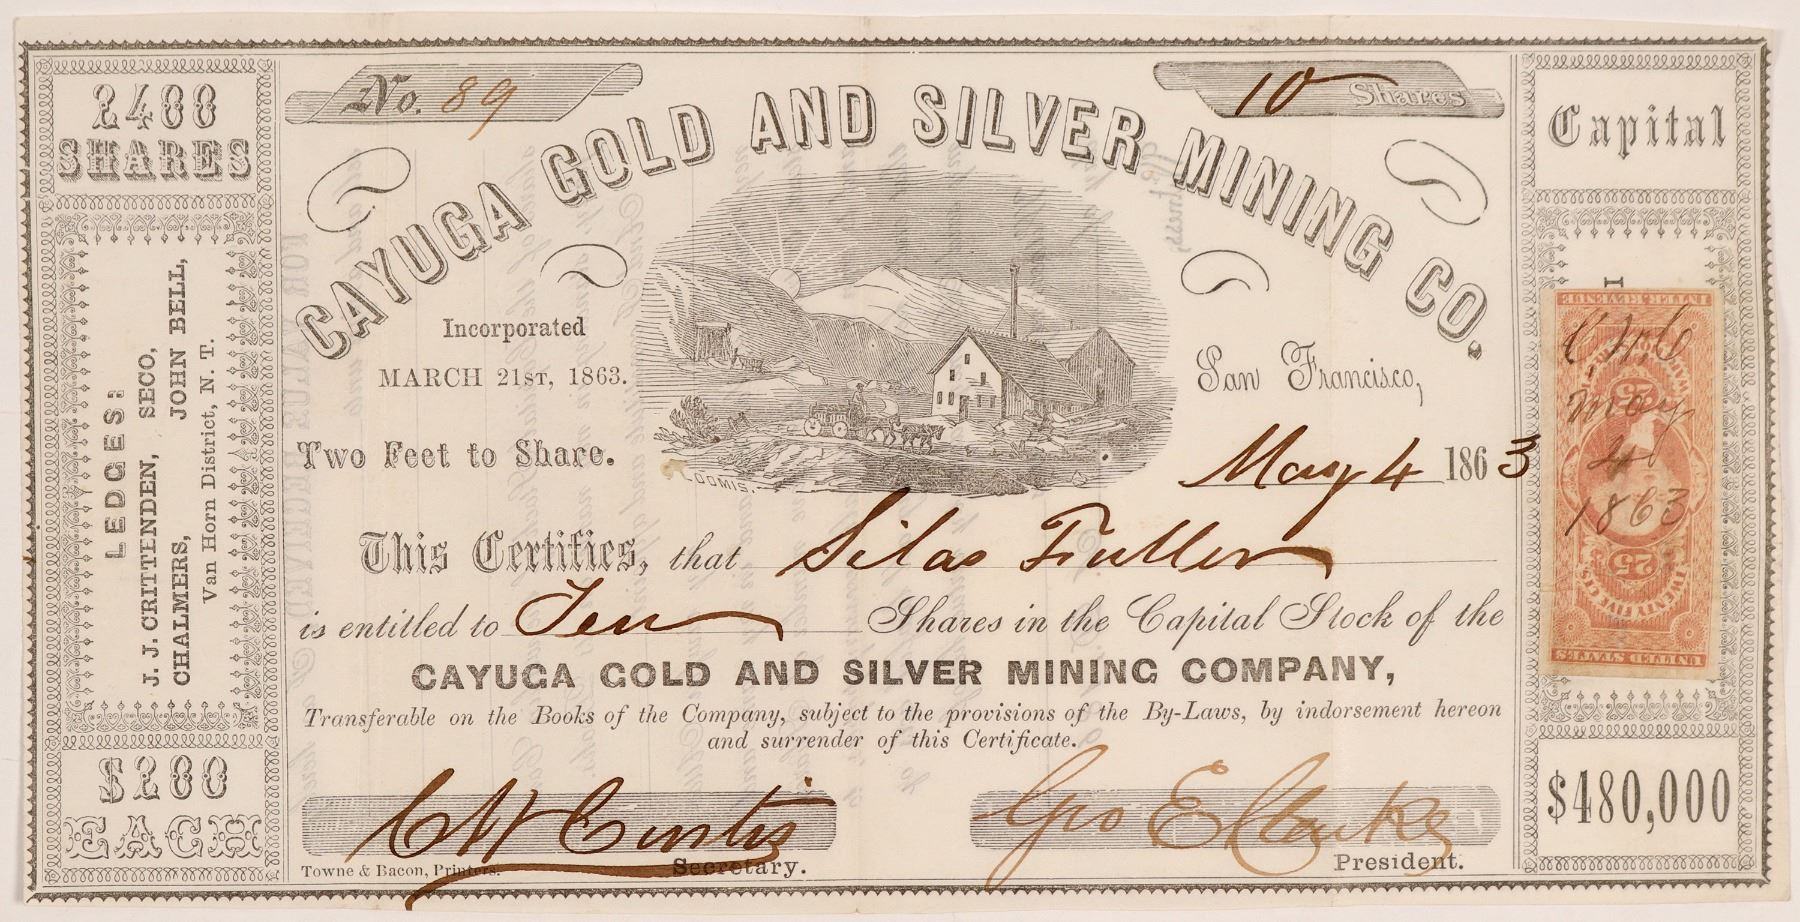 2400
SHARES
LEDGES:
J. J. CRITTENDEN, SECO,
CHALMERS, JOHN BELL,
Van Horn District, N. T.
$200
EACH
No. 89
10 Shares
CAYUGA GOLD AND SILVER MINING CO.
Incorporated
MARCH 21ST, 1863.
Two Feet to Share.
LOOMIS.
San Francisco,
May 4 1863
This Certifies, that Silas Fuller
is entitled to Ten Shares in the Capital Stock of the
CAYUGA GOLD AND SILVER MINING COMPANY,
Transferable on the Books of the Company, subject to the provisions of the By-Laws, by indorsement hereon
and surrender of this Certificate.
C W Curtis
Secretary.
Geo E Clarke
President.
Towne & Bacon, Printers.
Capital
INTER. REVENUE
25
May
4
1863
25
TWENTY FIVE CTS.
UNITED STATES
$480,000